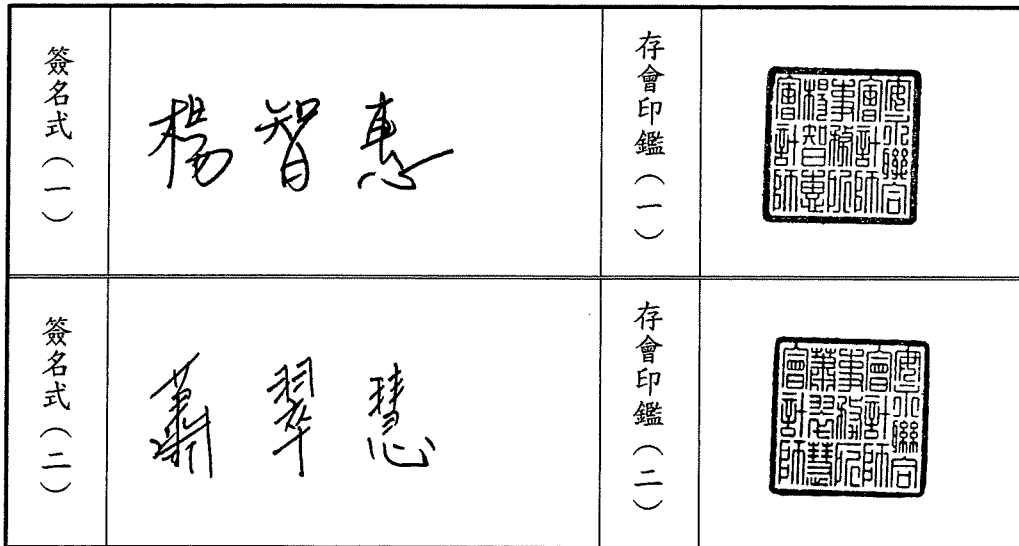 簽名式(一)
楊智惠
存會印鑑(一)
安永聯合
會計師
事務所
楊智惠
會計師
簽名式(二)
蕭翠慧
存會印鑑(二)
安永聯合
會計師
事務所
蕭翠慧
會計師